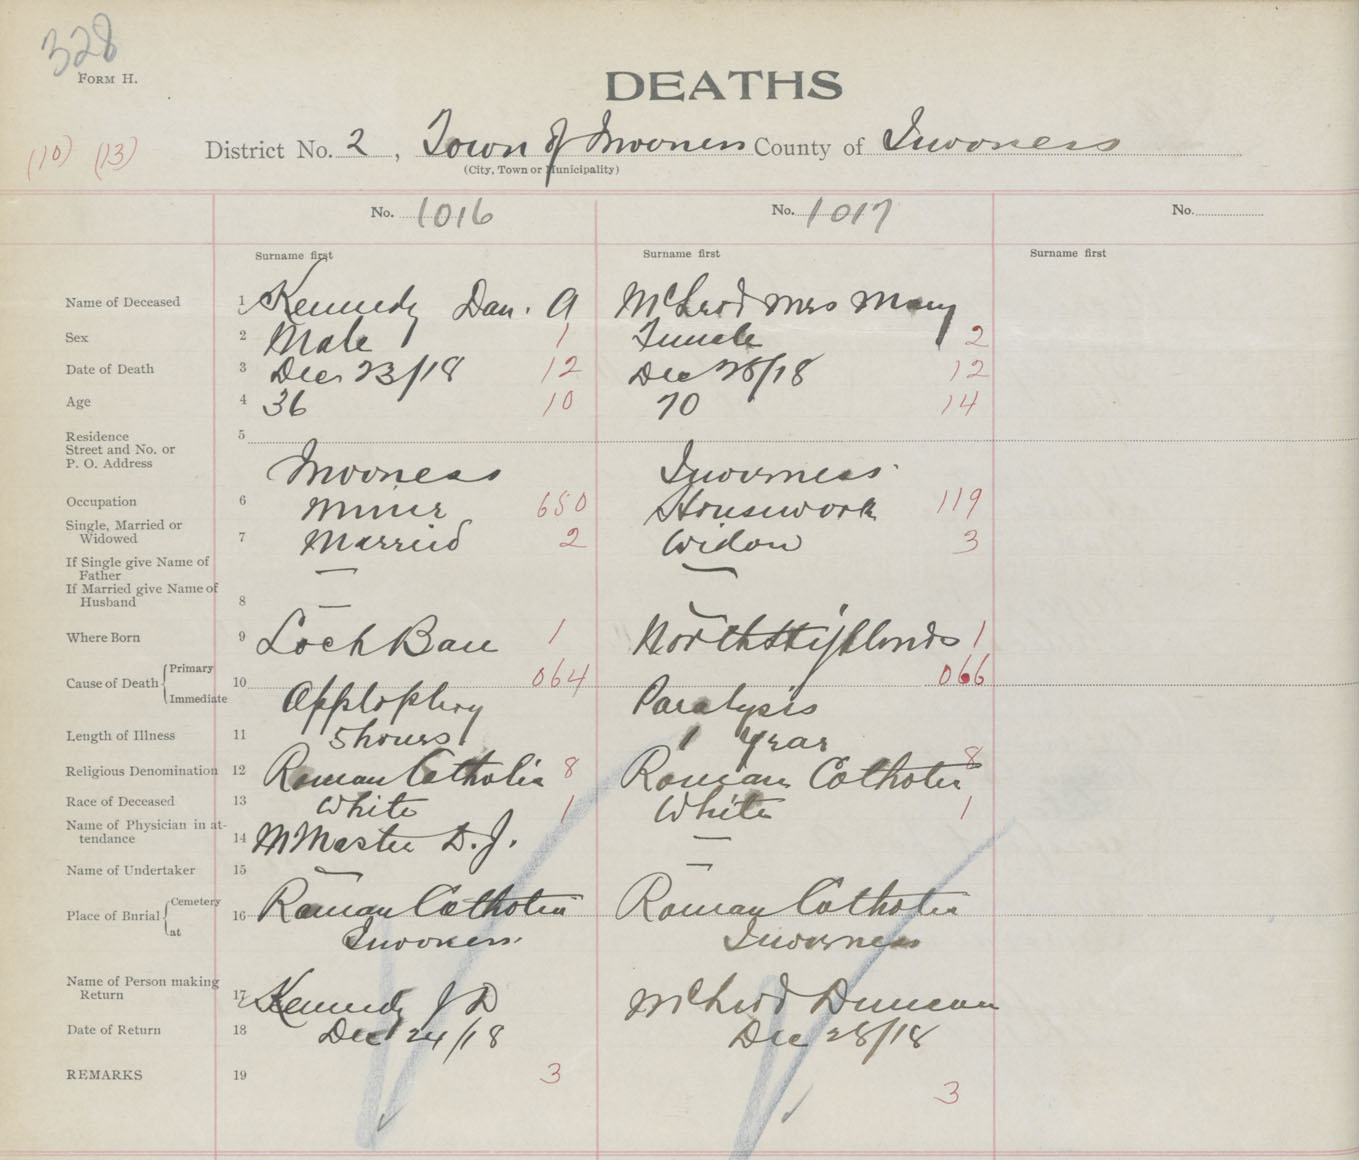 328
FORM H.
DEATHS
(10) (13) District No. 2, Town of Inverness County of Inverness
(City, Town or Municipality)
No. 1016 No. 1017 No.
Surname first Surname first Surname first
Name of Deceased 1 Kennedy Dan. A McLeod Mrs Mary
Sex 2 Male 1 Female 2
Date of Death 3 Dec 23/18 12 Dec 28/18 12
Age 4 36 10 70 14
Residence 5
Street and No. or
P. O. Address Inverness Inverness
Occupation 6 Miner 650 Housework 119
Single, Married or
Widowed 7 Married 2 Widow 3
If Single give Name of
Father — —
If Married give Name of
Husband 8 — —
Where Born 9 Loch Ban 1 North Highlands 1
Cause of Death { Primary 10 064 066
Immediate Applophxy Paralysis
Length of Illness 11 5 hours 1 year
Religious Denomination 12 Roman Catholic 8 Roman Catholic 8
Race of Deceased 13 White 1 White 1
Name of Physician in at-
tendance 14 McMaster D. J. —
Name of Undertaker 15 — —
Place of Burial { Cemetery 16 Roman Catholic Roman Catholic
at Inverness Inverness
Name of Person making
Return 17 Kennedy J D McLeod Duncan
Date of Return 18 Dec 24/18 Dec 28/18
REMARKS 19 3 3